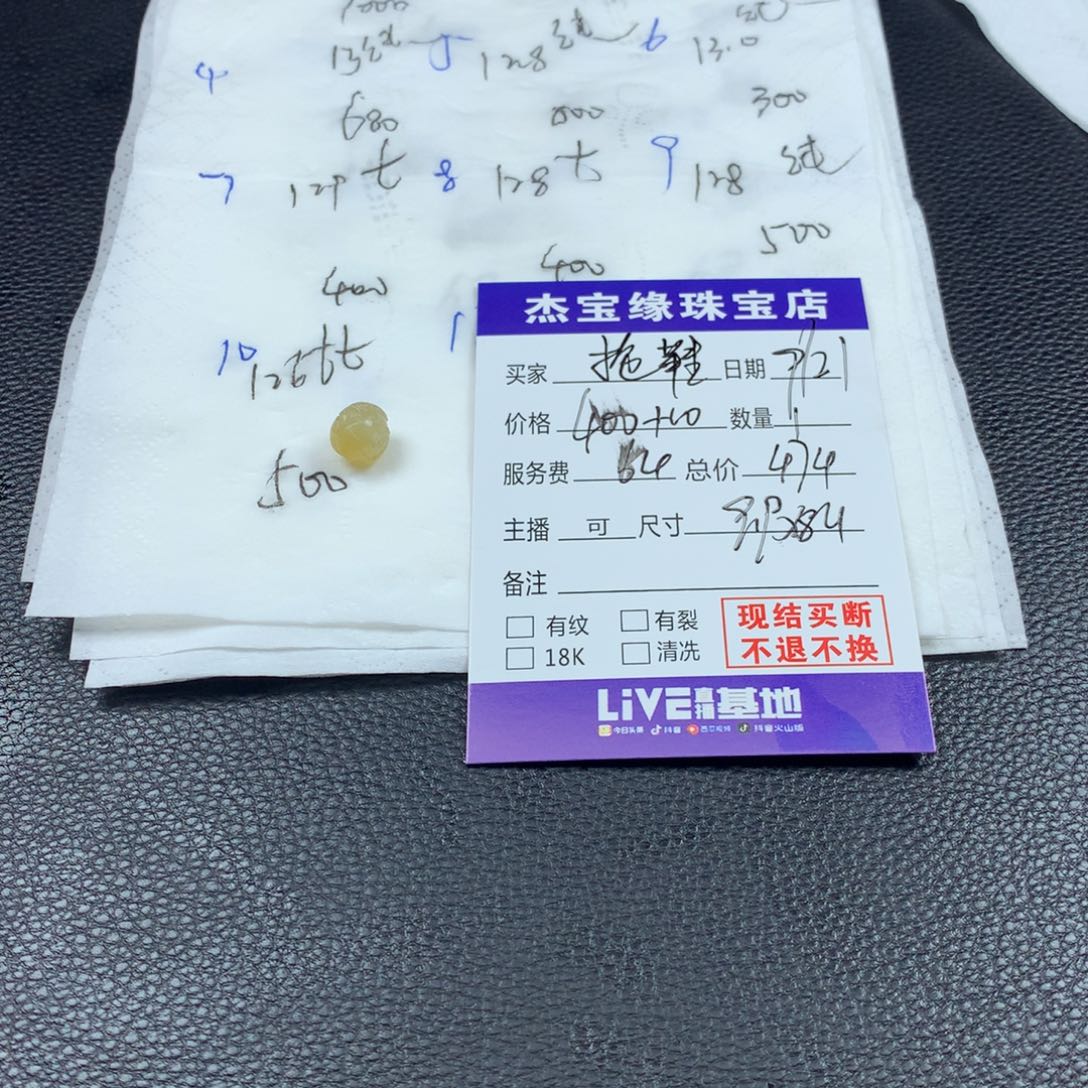 4 5 128 纯 6 13.0 纯
680 800 300
7 129 七 8 128 七 9 128 纯
400 400 500
10
500
杰宝缘珠宝店
买家 拖鞋 日期 7/21
价格 400+10 数量 1
服务费 64 总价 474
主播 可 尺寸
备注
有纹 有裂
18K 清冼
现结买断
不退不换
LiVE直播基地
今日头条 抖音 西瓜视频 抖音火山版